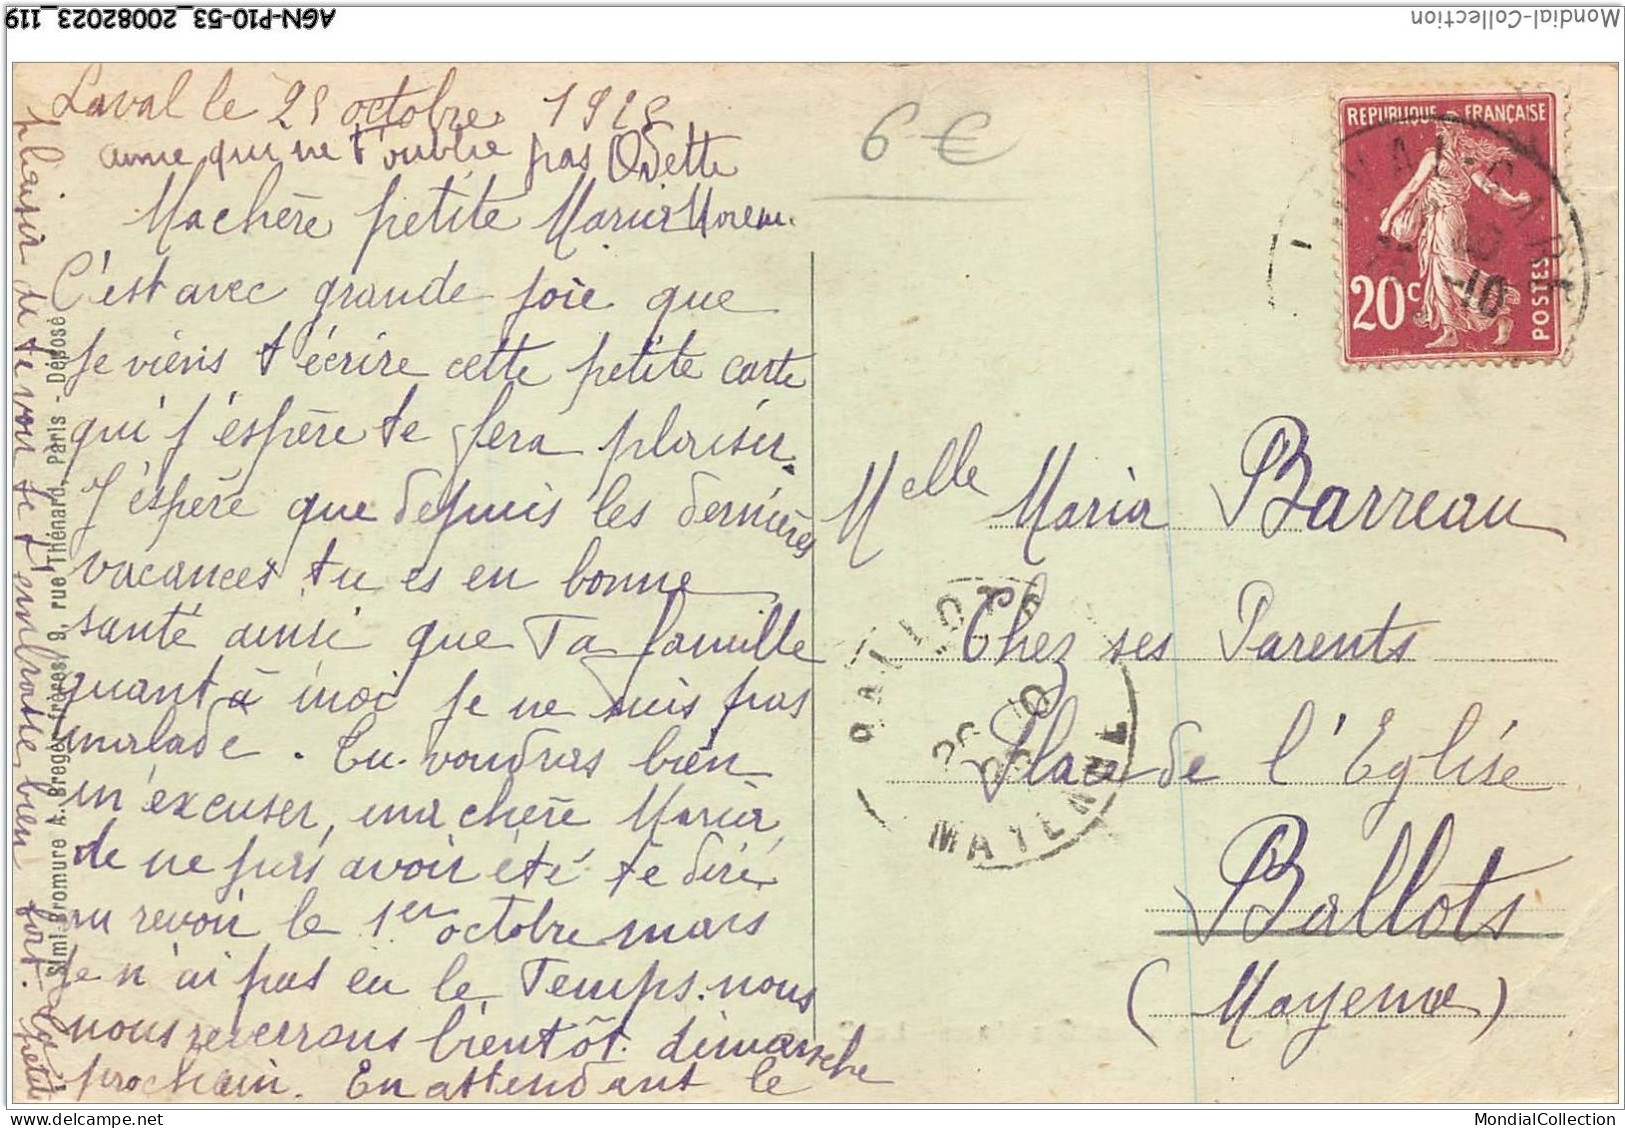 AGN-P10-53_20082023_119
Mondial-Collection
Laval le 25 octobre 1928
amie qui ne t'oublie pas Odette
Ma chère petite Maria
C'est avec grande joie que
je viens t'écrire cette petite carte
qui j'espère te fera plaisir.
J'espère que depuis les dernières
vacances tu es en bonne
santé ainsi que Ta famille
quant à moi je ne suis pas
malade. Tu voudras bien
m'excuser, ma chère Maria,
de ne pas avoir été te dire
au revoir le 1er octobre mais
je n'ai pas eu le Temps. nous
nous reverrons bientôt. dimanche
prochain. En attendant le
plaisir de te voir je t'embrasse bien fort. Ta petite
Simi-Bromure A. Breger frères, 9, rue Thénard, Paris - Déposé
6 €
REPUBLIQUE FRANÇAISE
20c
POSTES
Melle Maria Barreau
Chez ses Parents
Place de l'Eglise
Ballots
(Mayenne)
BALLOTS
MAYENNE
MondialCollection